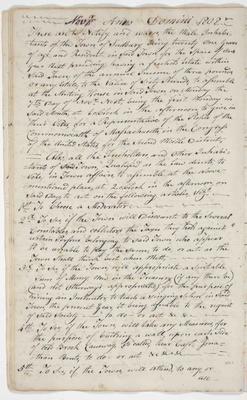 Novr Anno Domini 1808
These are to Notify and warn the Male Inhabi-
tants of the Town of Sudbury being twenty one years
of age and Resident in said Town for the space of one
year next preceding having a freehold estate within
said Town of the annual income of three pounds or
any estate to the Value of sixty Pounds to assemble
at the Meeting House in said Town on Monday the
7th Day of Novr Next being the first Monday in
said Month at o'clock in the afternoon to give in
their Votes for a Representative of the People of the
Commonwealth of Massachusetts in the Congress
of the United States for the District
Also all the Freeholders and other Inhabi-
tants of said Town Qualified as the law directs to
Vote in Town affairs to assemble at the above
mentioned place at o'clock in the afternoon on
said Day to act on the following articles Viz
1st To Choose a Moderator
2d To See if the Town will Discount to the Several
Constables and Collectors the Taxes they had against
certain Persons belonging to said Town who appear
to be unable to pay the same to do or act as the
Town shall think best when Met
3d To See if the Town will appropriate a Suitable
Sum of Money that is in the Treasury (if any there be)
and not otherways appropriated for the purpose of
hiring an Instructor to teach a Singing School in said
Town the present year it being agreeable to the request
of said Society to do or act &c &c
4th To See if the Town will take any Measures for
the purpose of building a wall upon each side
of the Brook Causway (so called) near Capt. Jona-
than to do or act &c &c &c
5th To See if the Town will attend to any or